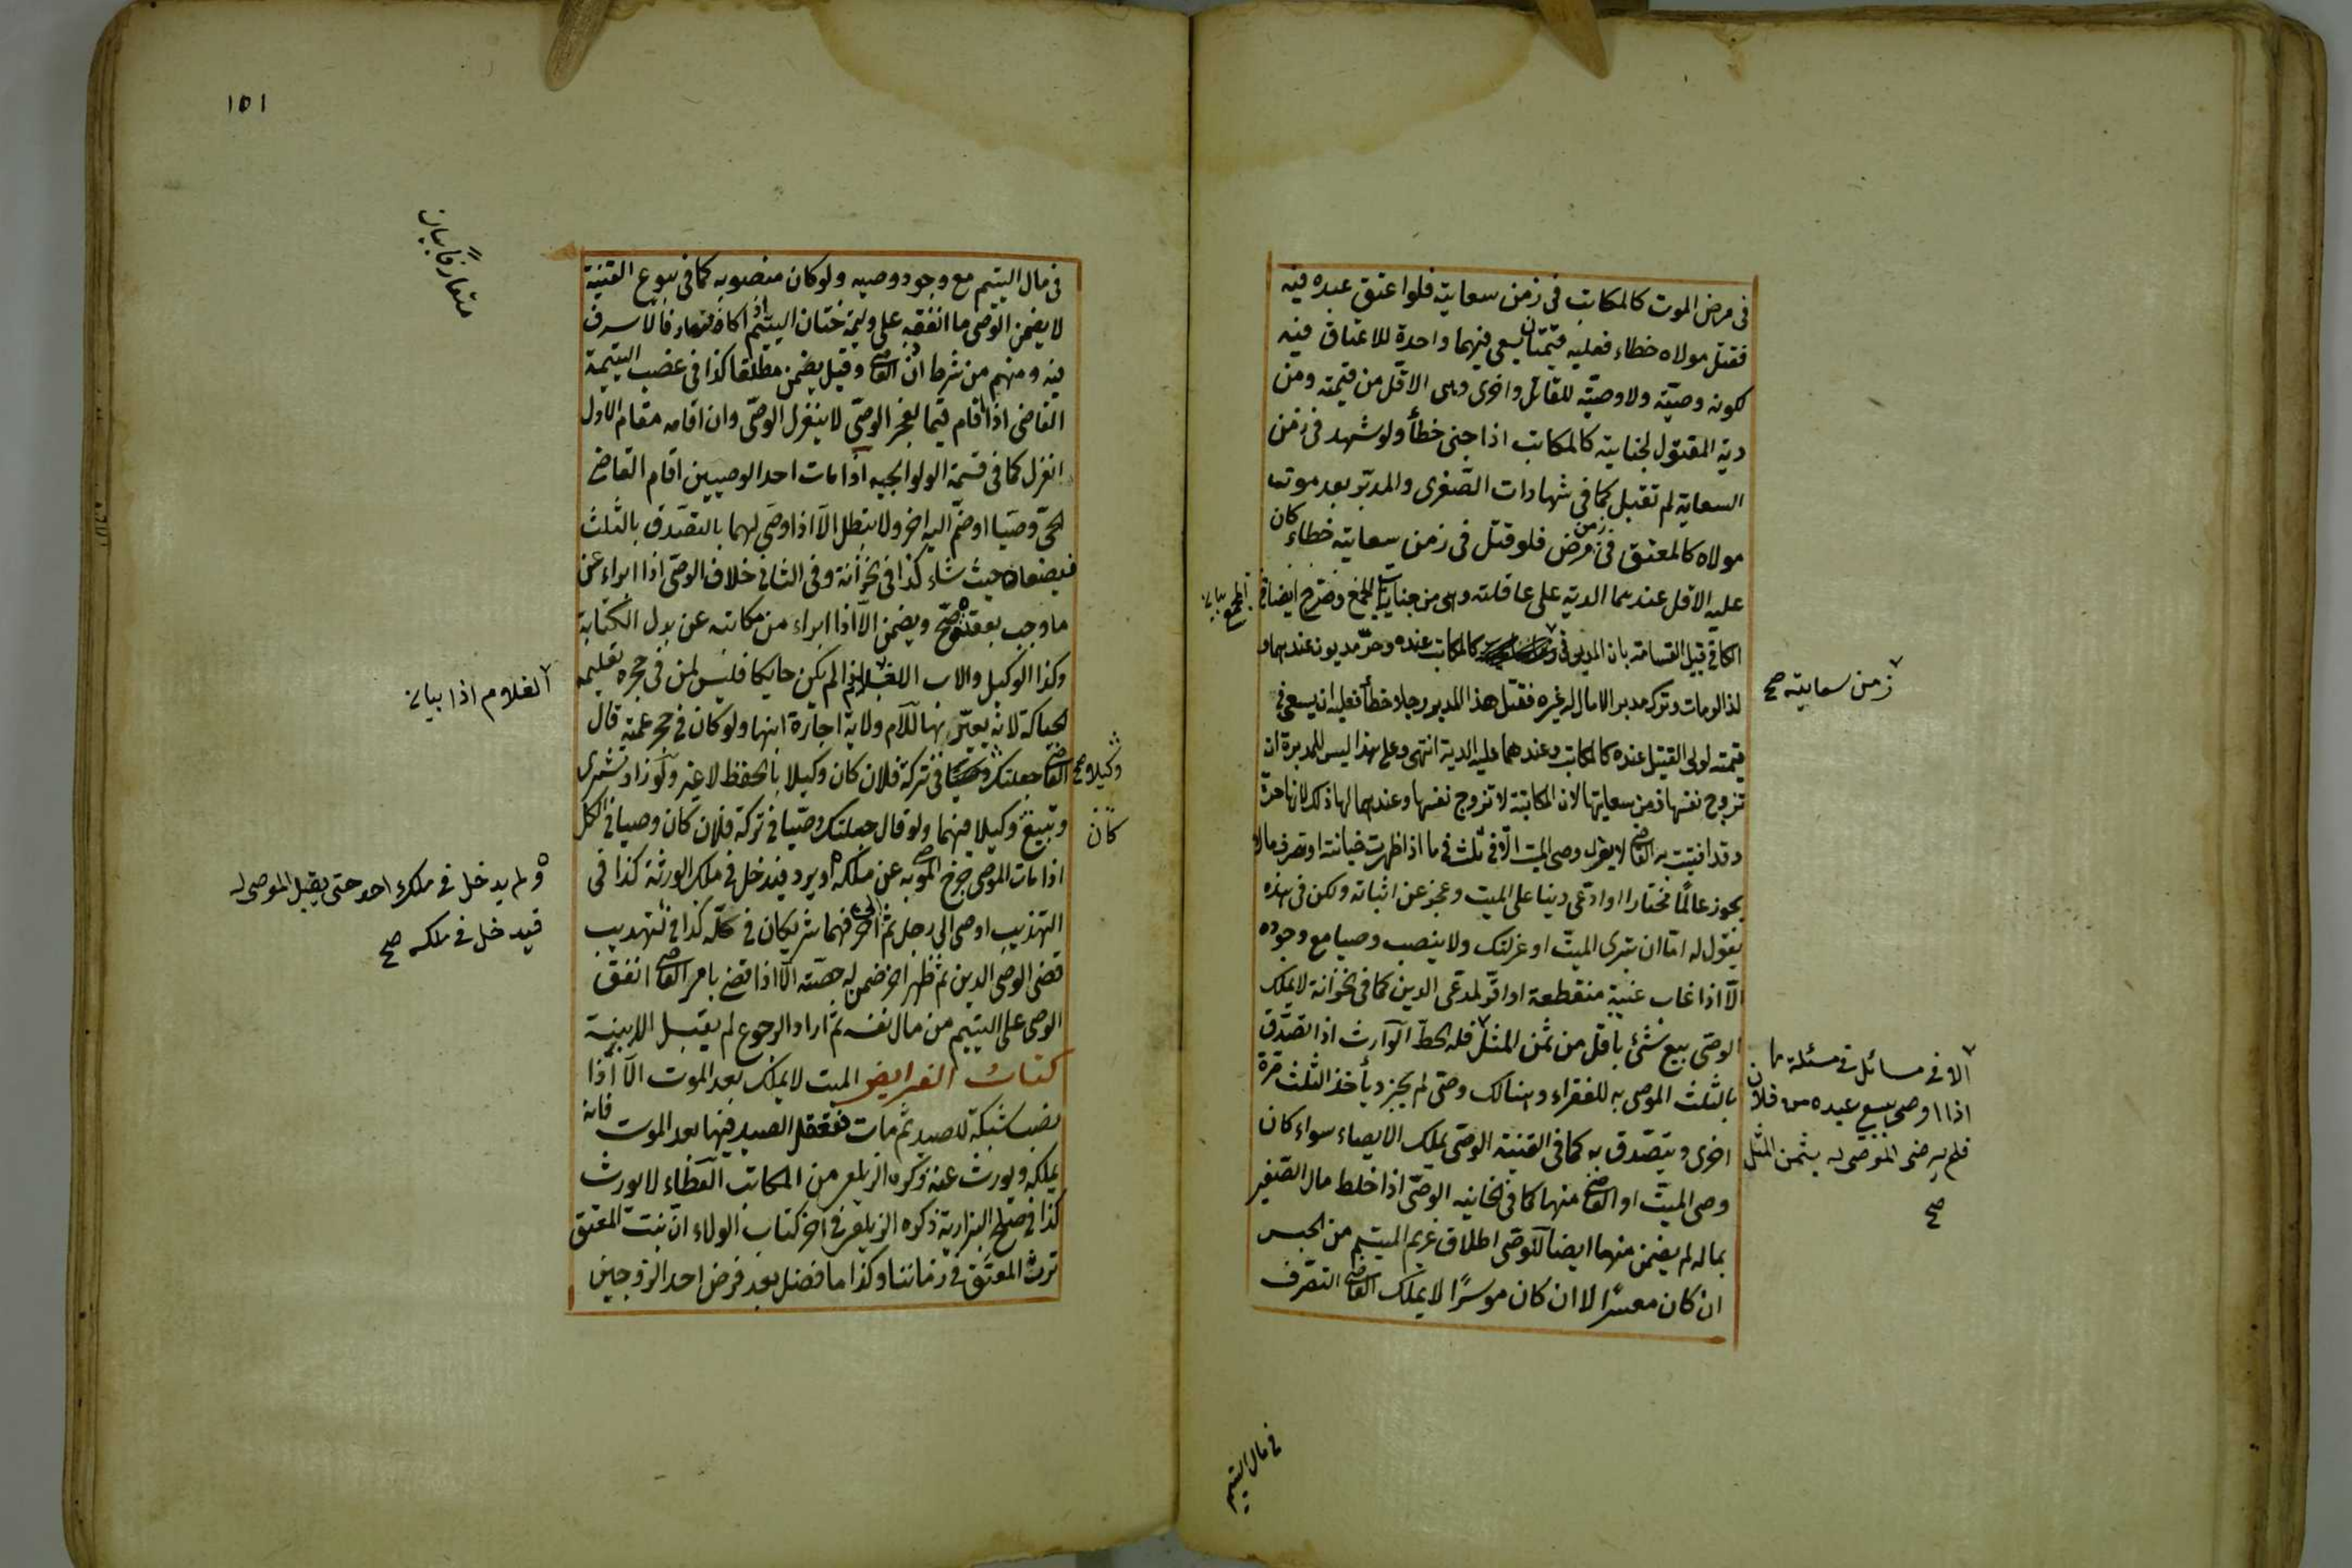 في مرض الموت كالمكاتب في زمن سعايته فلو اعتق عبده فيه
فقتل مولاه خطاء فعليه قيمتان يسعى فيهما واحدة للاعتاق فيه
لكونه وصيّة ولا وصيّة للقاتل واخرى وهى الاقل من قيمته ومن
دية المقتول لجنايته كالمكاتب اذا جنى خطأ ولو شهد في زمن
السعاية لم تقبل كما في شهادات الصّغرى والمدبّر بعد موت
مولاه كالمعتق في زمن مرض فلو قتل في زمن سعايته خطاء كان
عليه الاقل عندهما الدية على عاقلته وهى من جنايات المجمع وصرّح ايضا في
الكافي قبيل القسامة بان المدبر في كالمكاتب عنده وحرّ مديون عندهما و
لذا لو مات وترك مدبرا لا مال له غيره فقتل هذا المدبر رجلا خطأ فعليه ان يسعى في
قيمته لولى القتيل عنده كالمكاتب وعندهما عليه الدية انتهى وعلى هذا ليس للمدبرة ان
تزوج نفسها زمن سعايتها لان المكاتبة لا تزوج نفسها وعندهما لها ذلك لانها حرة
وقد افتيت به القاضى لا يعزل وصى الميت الّا في ثلث في ما اذا ظهرت خيانته او تصرف ما لا
يجوز عالمًا مختارا او ادّعى دينا على الميت وعجز عن اثباته ولكن في هذه
يقول له امّا ان تبرى الميّت او عزلتك ولا ينصب وصيا مع وجوده
الّا اذا غاب غيبة منقطعة او اقرّ لمدّعى الدين كما في الخزانة لا يملك
الوصى بيع شئ باقل من ثمن المثل فله الحطّ الوارث اذا تصدّق
بالثلث الموصى به للفقراء وهنالك وصى لم يجز ويأخذ الثلث مرة
اخرى ويتصّدق به كما في القنية الوصّى يملك الايصاء سواء كان
وصى الميّت او القاضى منها كما في الخانيه الوصّى اذا خلط مال الصّغير
بماله لم يضمن منها ايضا للوصّى اطلاق غريم الميتم من الحبس
ان كان معسرًا لا ان كان موسرًا لا يملك القاضى التصّرف
المجمع بيان
زمن سعايته صح
الا في مسائل في مسئلة ما
اذا اوصى ببيع عبده من فلان
فلم يرضى الموصى له بثمن المثل
صح
في مال اليتيم
١٥١
متعارفاً بيان
في مال اليتيم مع وجود وصيه ولو كان منصوبه كما في بيوع القنية
لا يضمن الوصى ما انفقه على وليمة ختان اليتيم اذا كان متعارفا لا سرف
فيه ومنهم من شرط اذن القاضى وقيل يضمن مطلقا كذا في غصب اليتيمة
القاضى اذا اقام قيّما لعجز الوصّى لا ينعزل الوصّى وان اقامه مقام الاول
انعزل كما في قسمة الولوالجيه اذا مات احد الوصيين اقام القاضى
الحىّ وصيّا او ضمّ اليه اخر ولا تبطل الّا اذا اوصى لهما بالتصدق بالثلث
فيضعان حيث شاء كذا في الخزانة وفي الثانى خلاف الوصّى اذا ابراء عن
ما وجب بعقده صحّ ويضمن الّا اذا ابراء من مكاتبه عن بدل الكتابة
وكذا الوكيل والاب الغلام اذا لم يكن حايكا فليس لمن في حجره تعليمه
الحياكة لانه يعيّر بها للام ولاية اجارة ابنها ولو كان في حجر عمته قال
القاضى جعلتك في تركة فلان كان وكيلا بالحفظ لا غير ولو زاد تشترى
وتبيع وكيلا فيهما ولو قال جعلتك وصّيا في تركة فلان كان وصيا في الكل
اذا مات الموصى خرج الموصى به عن ملكه او يرد فيدخل في ملك الورثة كذا في
التهذيب اوصى الى رجل ثم الى اخر فهما شريكان في كلّه كذا في تهذيب
قضى الوصى الدين ثم ظهر اخر ضمن له حصّته الّا اذا قضى بامر القاضى انفق
الوصى على اليتيم من مال نفسه ثم اراد الرجوع لم يقبل الا ببينة
كتاب الفرايض الميت لا يملك بعد الموت الّا اذا
نصب شبكة للصيد ثم مات فتعقل الصيد فيها بعد الموت فانه
يملكه ويورث عنه ذكره الزيلعى من المكاتب العطاء لا يورث
كذا في صلح البزازية ذكره الزيلعى في اخر كتاب الولاء انّ بنت المعتق
ترث المعتق في زماننا وكذا ما فضل بعد فرض احد الزوجين
الغلام اذا بيان
وكيلا صح
كان
ولم يدخل في ملك احد حتى يقبل الموصى له
فيدخل في ملكه صح